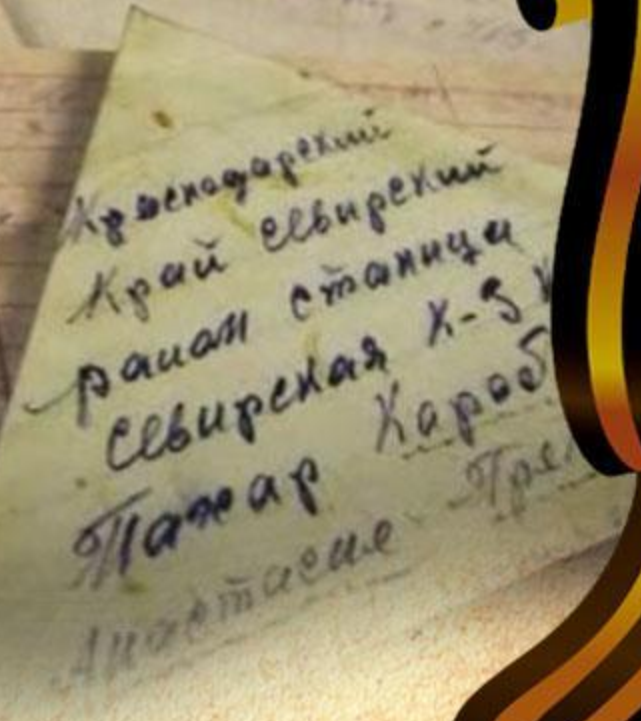 Краснодарский
Край севирский
раиан станица
севирская К-З
Тажар Караб
Анастасие Тре